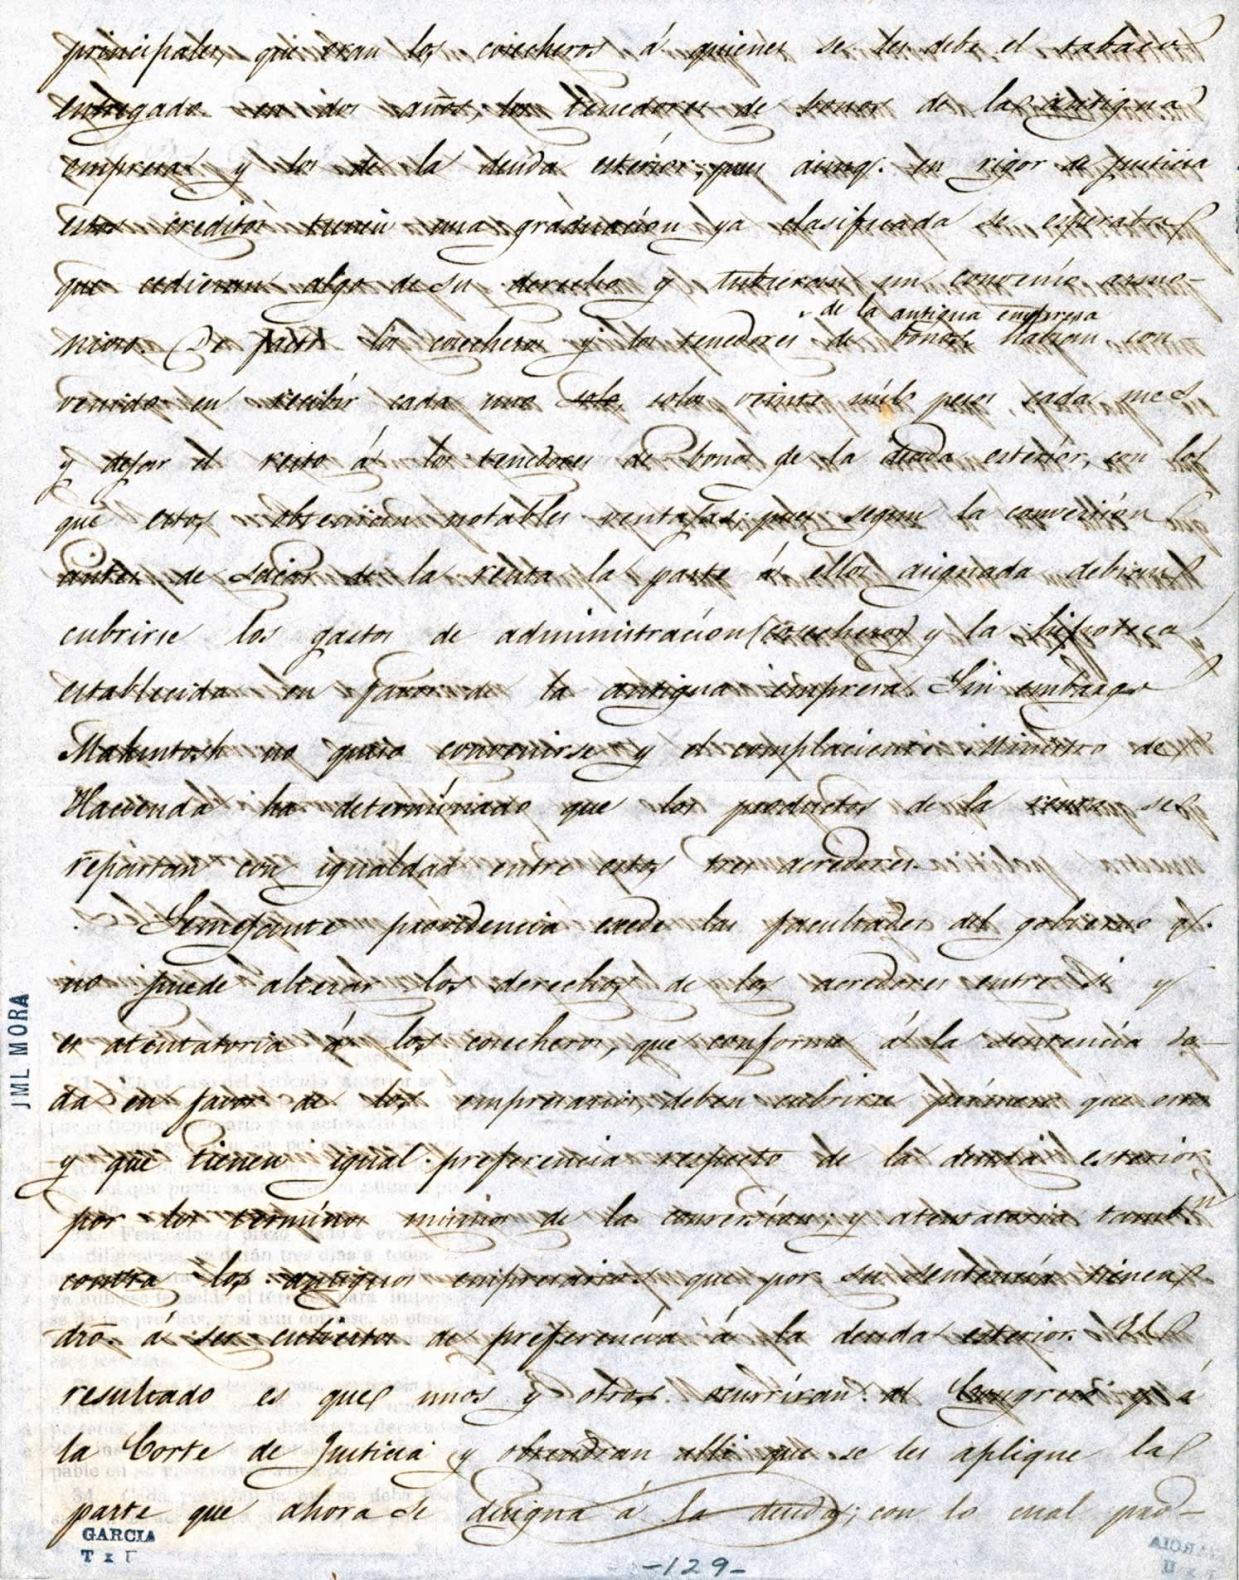 principales, que eran los cosecheros á quienes se les debe el tabaco
entregado en dos años, los tenedores de bonos de la antigua
empresa y los de la deuda esterior; pues aunq. en rigor de justicia
estos creditos tienen una graduación ya clasificada se esperaba
que cedieran algo de su derecho y tubieran un convenio armo-
de la antigua empresa
nioso. De facto los cosecheros y los tenedores de bonos, habian con
venido en recibir cada uno solo, solos veinte mil pesos, cada mes
y dejar el resto á los tenedores de bonos de la deuda esterior, con lo
que estos obtenian notables ventajas; pues segun la conversión
antes de sacar de la renta la parte á ellos asignada debian
cubrirse los gastos de administración (cosecheros) y la hipoteca
establecida en favor de la antigua empresa. Sin embargo
Makintosh no quiso convenirse y el complaciente Ministro de
Hacienda ha determinado que los productos de la renta se
repartan con igualdad entre estos tres acredores.
Semejante providencia exede las facultades del gobierno q.
no puede alterar los derechos de los acredores entre si y
es atentatoria á los cosecheros, que conforme á la sentencia da-
da en favor de los empresarios, deben cubrirse primero que otro
y que tienen igual preferencia respecto de la deuda esterior
por los terminos mismos de la conversion; y atentatoria tambn
contra los antiguos empresarios que por su sentencia tienen
dro. á ser cubiertos de preferencia á la deuda esterior. El
resultado es que unos y otros ocurriran al Congreso y á
la Corte de Justicia y obtendran alli que se les aplique la
parte que ahora se designa á la deuda; con lo cual pro-
JML MORA
GARCIA
-129-